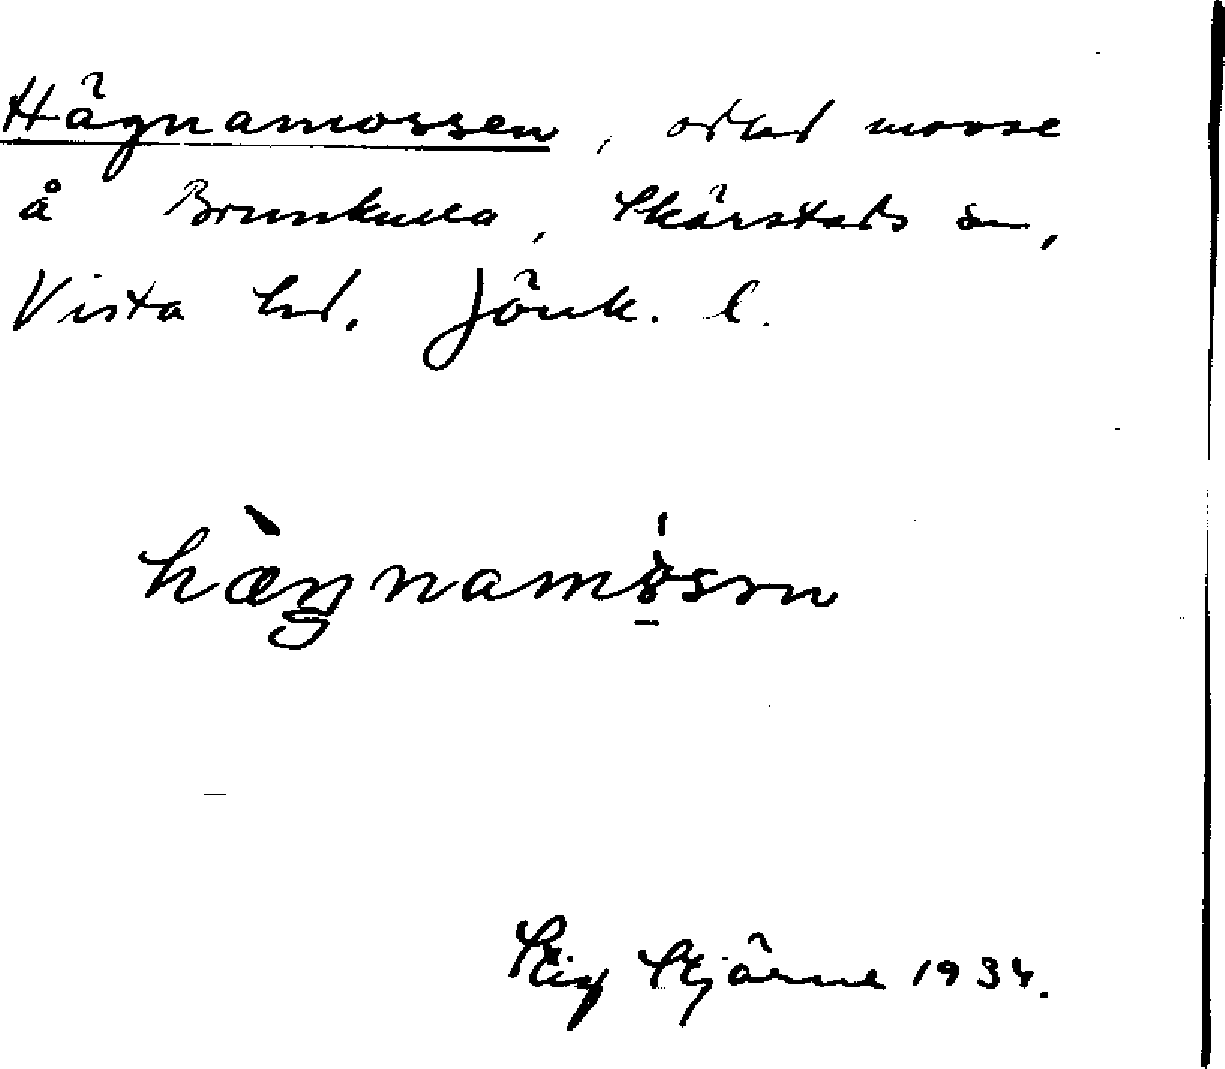 Hägnamossen, odlad mosse
å Brunkulla, Skärstads sn,
Vista hd. Jönk. l.
hægnamåsən
Stig Stjärne 1934.